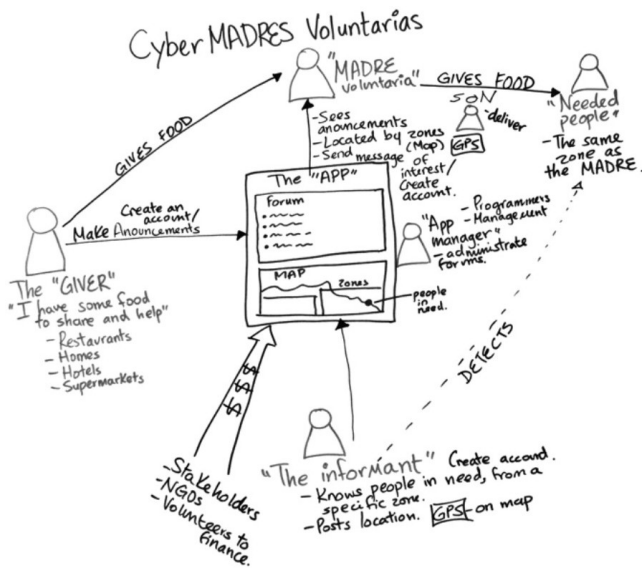 CyberMADRES Voluntarias
"MADRE
voluntaria"
GIVES FOOD
SON
-deliver
GPS
"Needed
people"
- The same
zone as
the MADRE.
GIVES FOOD
- Sees
anouncements
- Located by zones
(Map)
- Send message
of
interest/
Create
account.
The "APP"
Forum
MAP
Zones
people
in
need.
"App
manager"
- Programmers
- Management
- administrate
forums.
Create an
account/
Make Anouncements
The "GIVER"
"I have some food
to share and help"
- Restaurants
- Homes
- Hotels
- Supermarkets
$
$
$
- Stakeholders
- NGOs
- Volunteers to
finance.
DETECTS
"The informant" Create account.
- Knows people in need, from a
specific zone.
- Posts location. GPS - on map